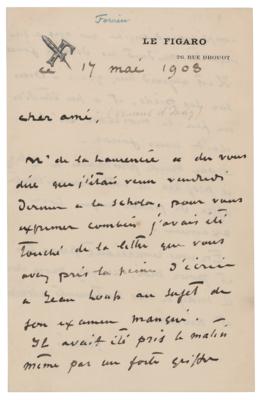 Forain
LE FIGARO
26, RUE DROUOT
17 mai 1908
cher ami,
Mr de la Laurencie a dû vous
dire que j'étais venu vendredi
dernier a la Schola, pour vous
exprimer combien j'avais été
touché de la lettre que vous
avez pris la peine d'écrire
a Jean Loup au sujet de
son examen manqué.
Il avait été pris le matin
même par un forte grippe